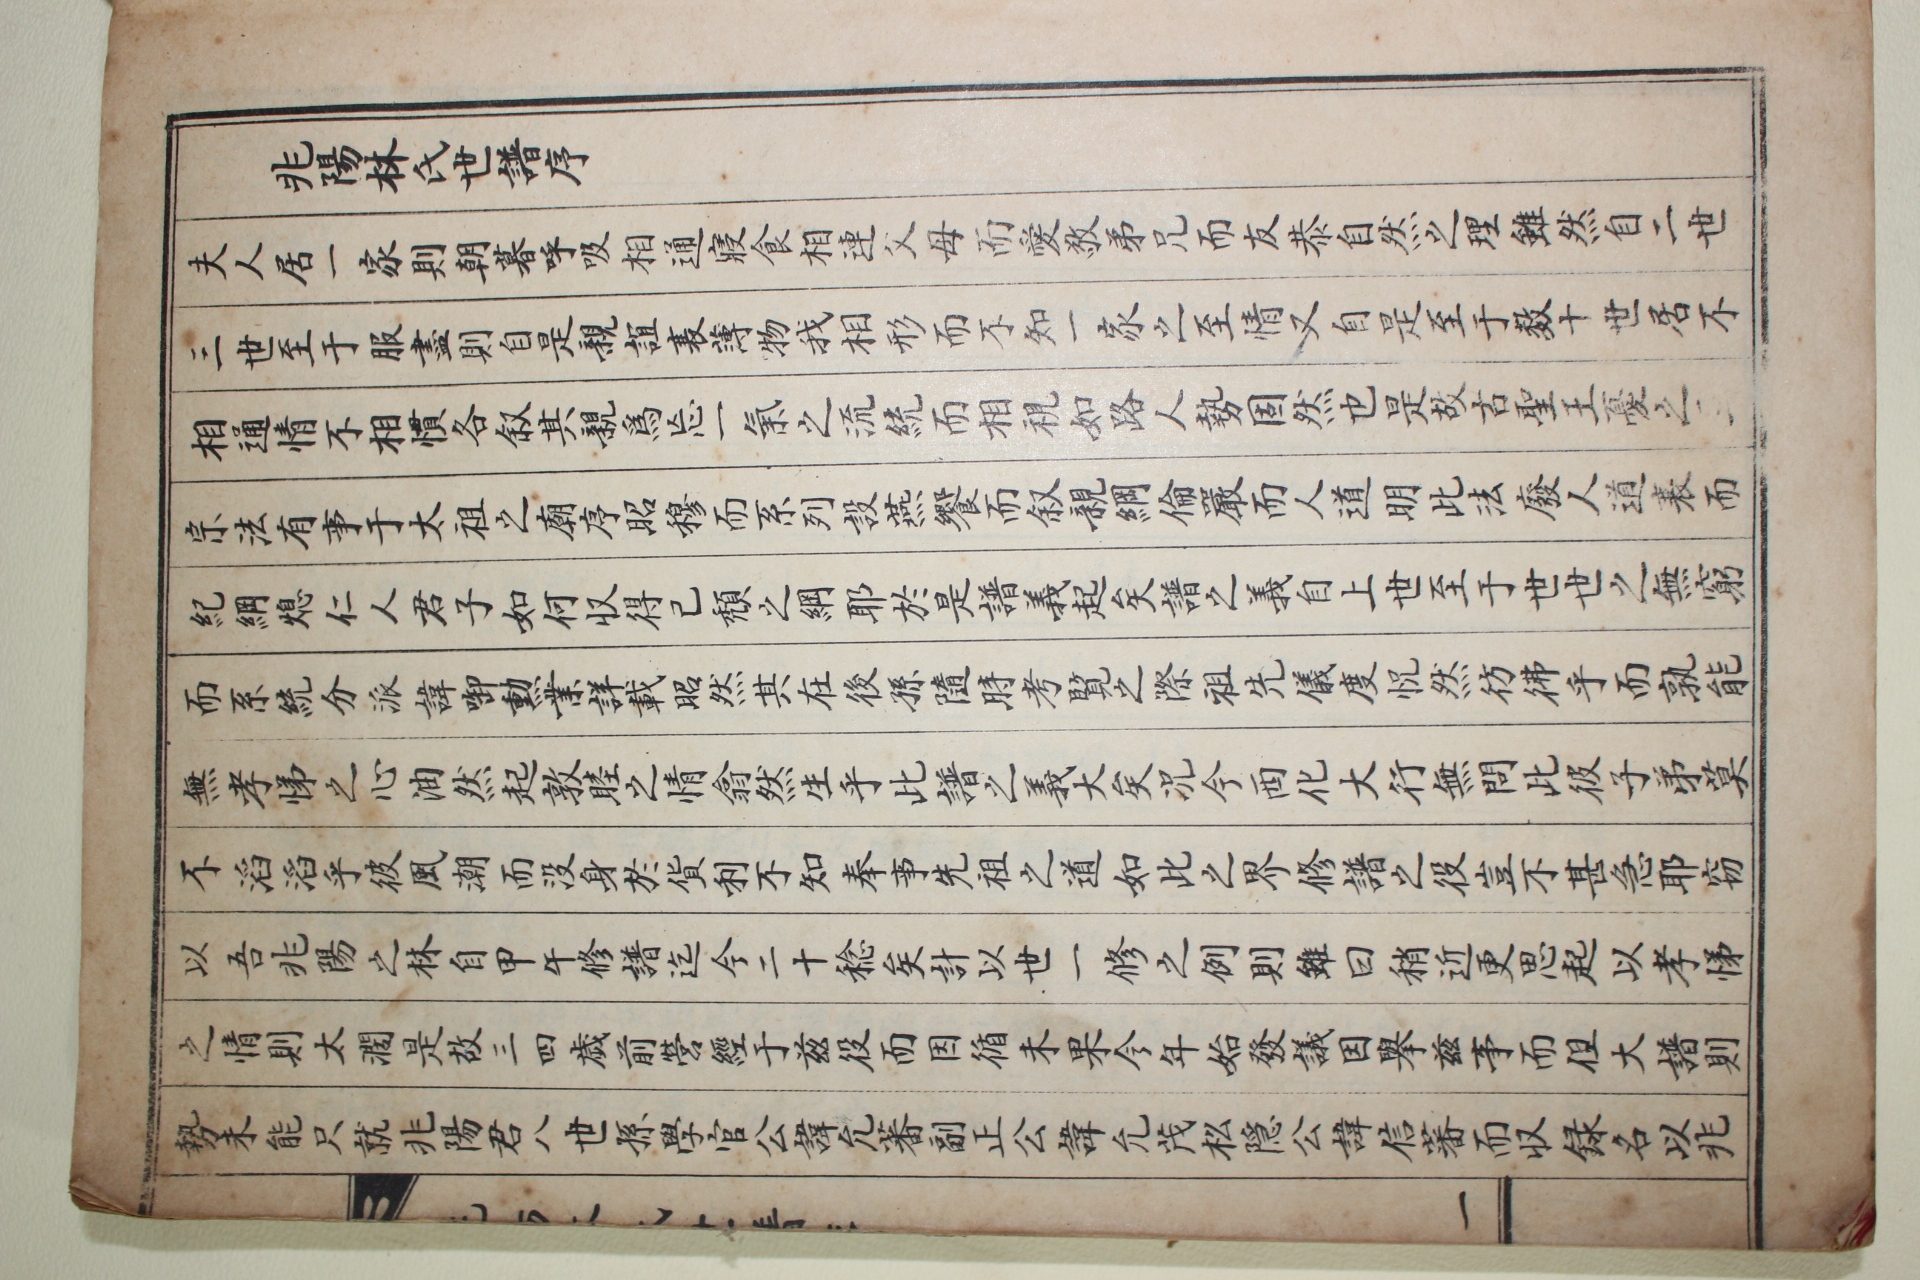 兆陽林氏世譜序
夫人居一家則朝暮呼吸相通寢食相連父母而愛敬弟兄而友恭自然之理雖然自二世
三世至于服盡則自是親誼衰薄物我相形而不知一家之至情又自是至于數十世居不
相通情不相慣各叙其親爲忘一氣之流統而相視如路人勢固然也是故古聖王憂之立
宗法有事于太祖之廟序昭穆而系列設燕饗而叙親綱倫嚴而人道明此法廢人道衰而
紀綱熄仁人君子如何收得已頹之綱耶於是譜義起矣譜之義自上世至于世世之無窮
而系統分派諱啣勳業詳載昭然其在後孫隨時考覽之際祖先儀度怳然彷彿乎而孰能
無孝悌之心油然起敦睦之情翕然生乎此譜之義大矣況今西化大行無問此彼子弟莫
不滔滔乎彼風潮而没身於貨利不知奉事先祖之道如此之界修譜之役豈不甚急耶窃
以吾兆陽之林自甲午修譜迄今二十稔矣計以世一修之例則雖曰稍近更思起以孝悌
之情則太濶是故三四歲前營經于玆役而因循未果今年始發議因擧玆事而但大譜則
勢未能只就兆陽君八世孫學官公諱允蕃副正公諱允茂松隱公諱信蕃而収録名以兆
一